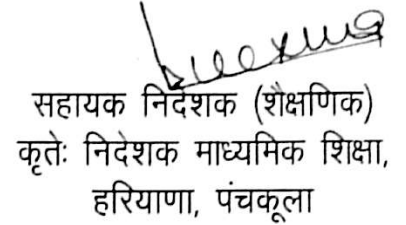 सहायक निदेशक (शैक्षणिक)
कृतेः निदेशक माध्यमिक शिक्षा,
हरियाणा, पंचकूला